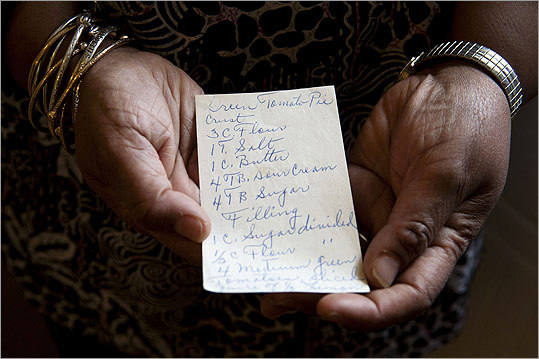 Green Tomato Pie
Crust
3 C. Flour
1 T. Salt
1 C. Butter
4 TB. Sour Cream
4 TB Sugar
Filling
1 C. Sugar divided
½ C Flour "
4 Medium green
Tomatoes, sliced